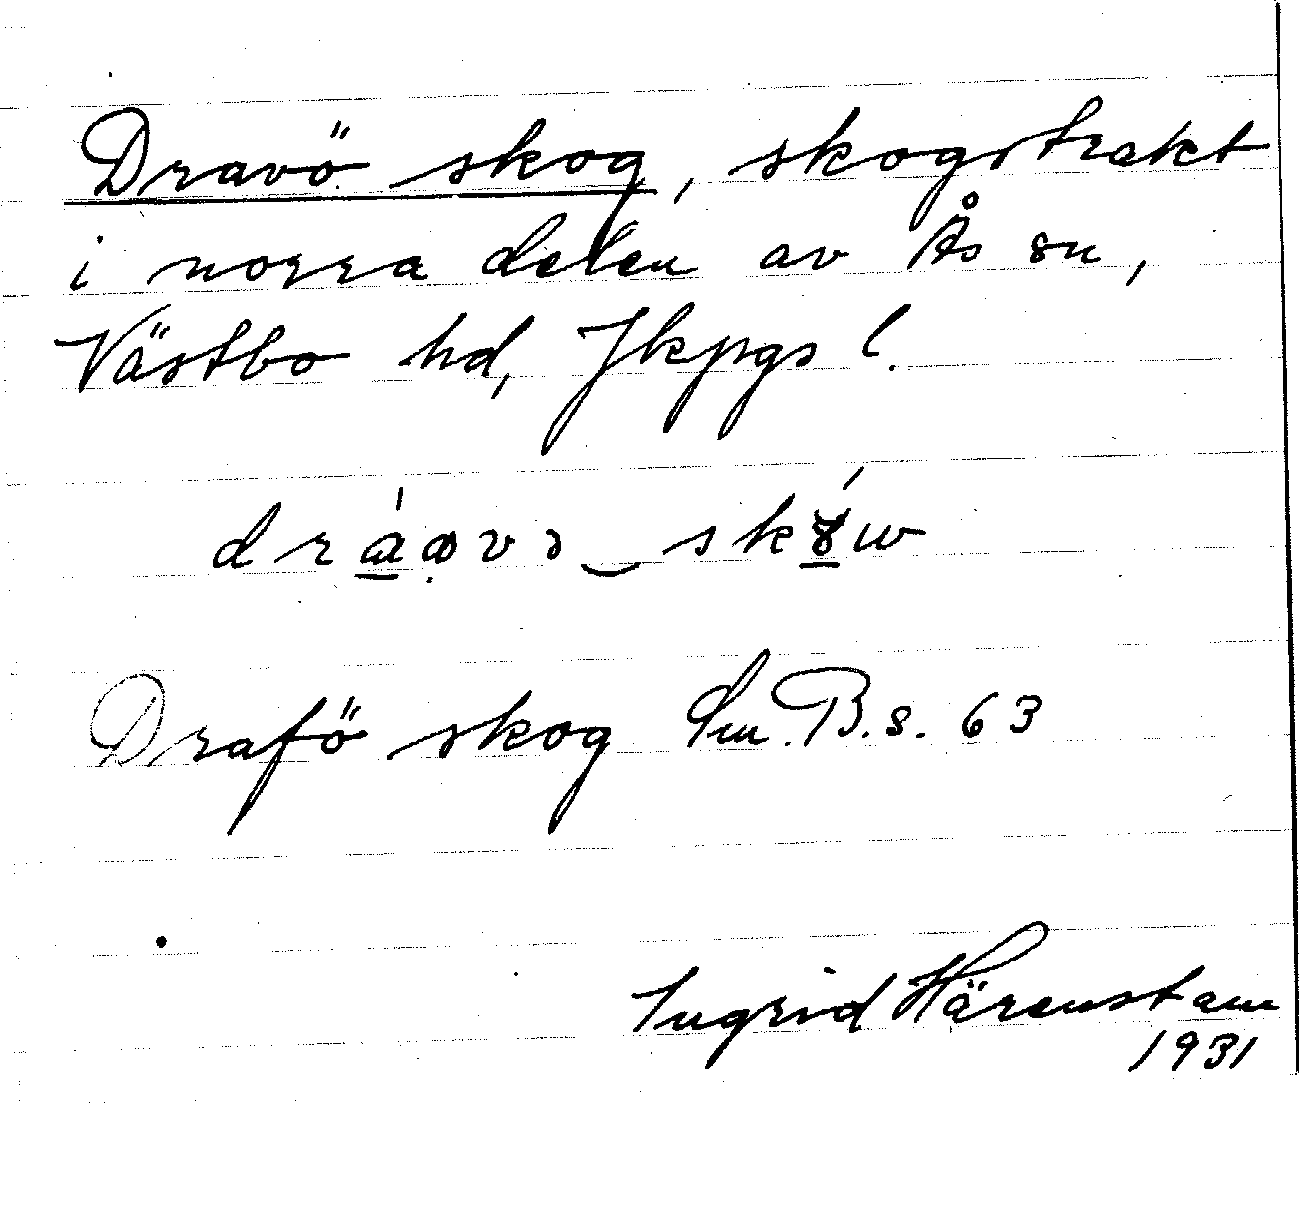 Dravö skog, skogstrakt
i norra delen av Ås sn,
Västbo hd, Jkpgs l.
Drafö skog Sm. B. s. 63
Ingrid Härenstam
1931